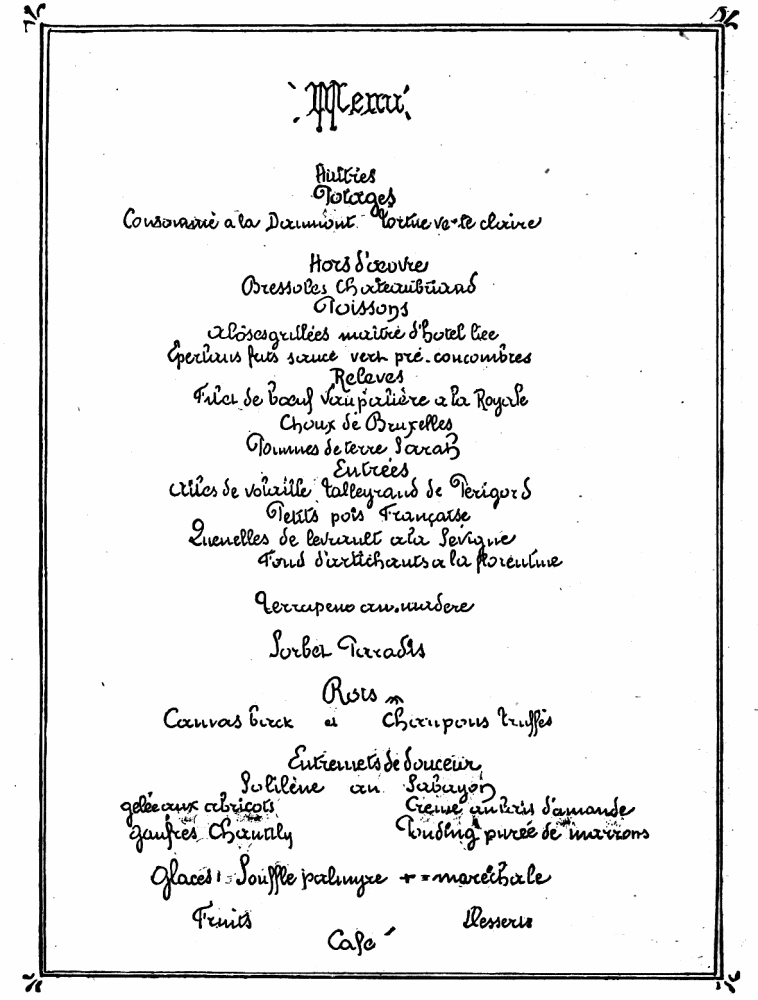 Menu
Huîtres
Potages
Consommé a la Daumont Tortue verte claire
Hors d'œuvre
Bressoles Chateaubriand
Poissons
aloses grillées maitre d'hotel liee
Eperlans frits sauce vert pré-concombres
Releves
Filet de bœuf Vaupalière a la Royale
Choux de Bruxelles
Pommes de terre Sarah
Entrées
ailes de volaille talleyrand de Perigord
Petits pois Française
Quenelles de levrault a la Sévigne
Fond d'artichauts a la florentine
terrapene au madere
Sorbet Paradis
Rots
Canvas back et Chapons truffés
Entremets de douceur
Solilène au Sabayon
gelée aux abricots Creme au lait d'amande
gaufres Chantily Pouding purée de marrons
Glaces: Souffle palmyre + = maréchale
Fruits Desserts
Café